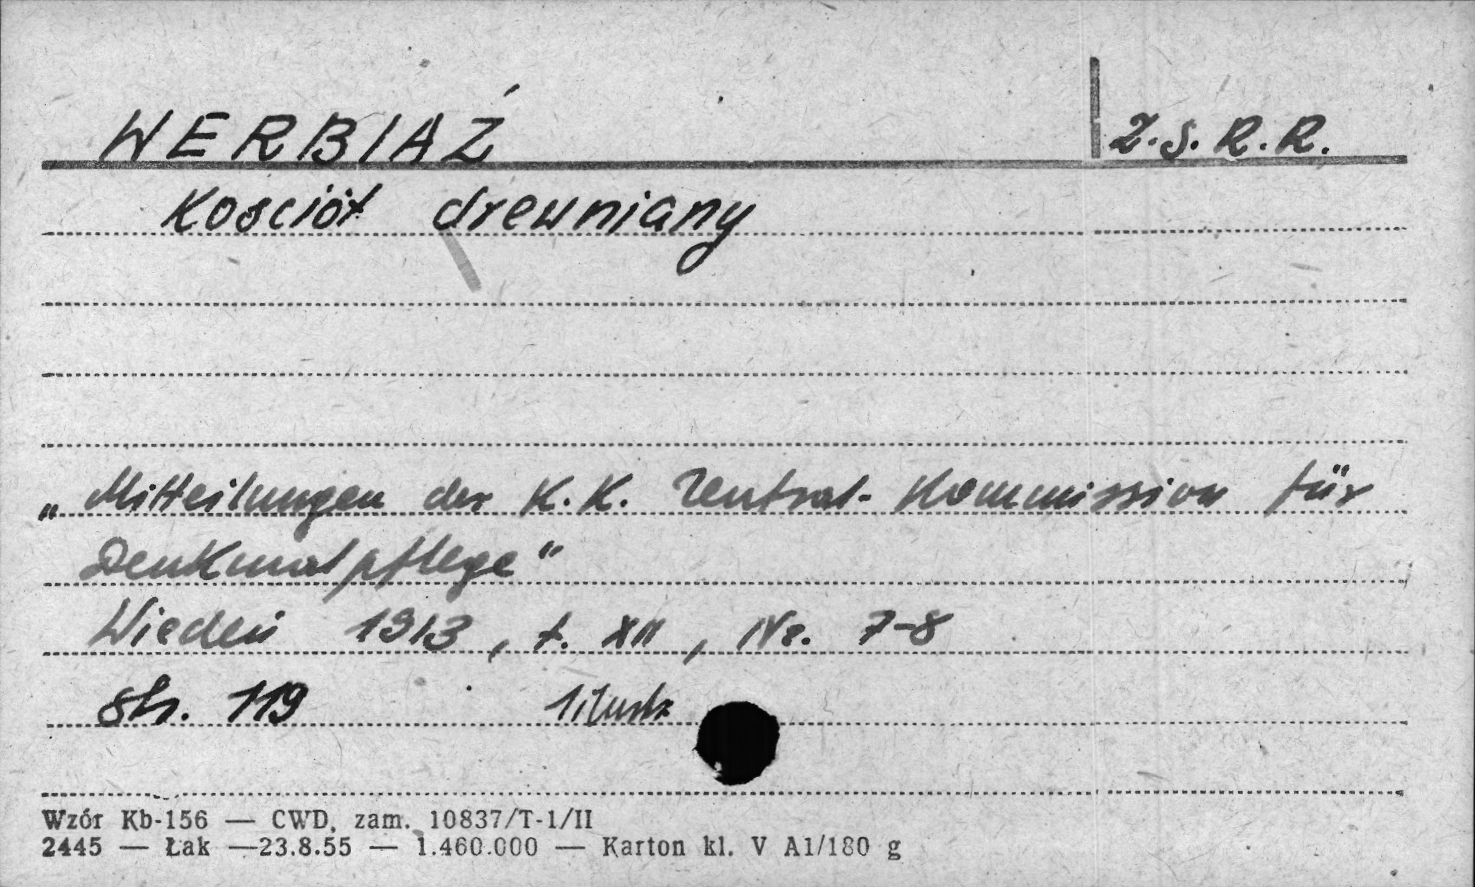 WERBIAŹ
Z.S.R.R.
Kosciół drewniany
„Mitteilungen der K.K. Zentral-Kommission für
Denkmalpflege"
Wiedeń 1913, t. XII, Nr. 7-8
str. 119 1 ilustr
Wzór Kb-156 — CWD, zam. 10837/T-1/II
2445 — Łak —23.8.55 — 1.460.000 — Karton kl. V A1/180 g